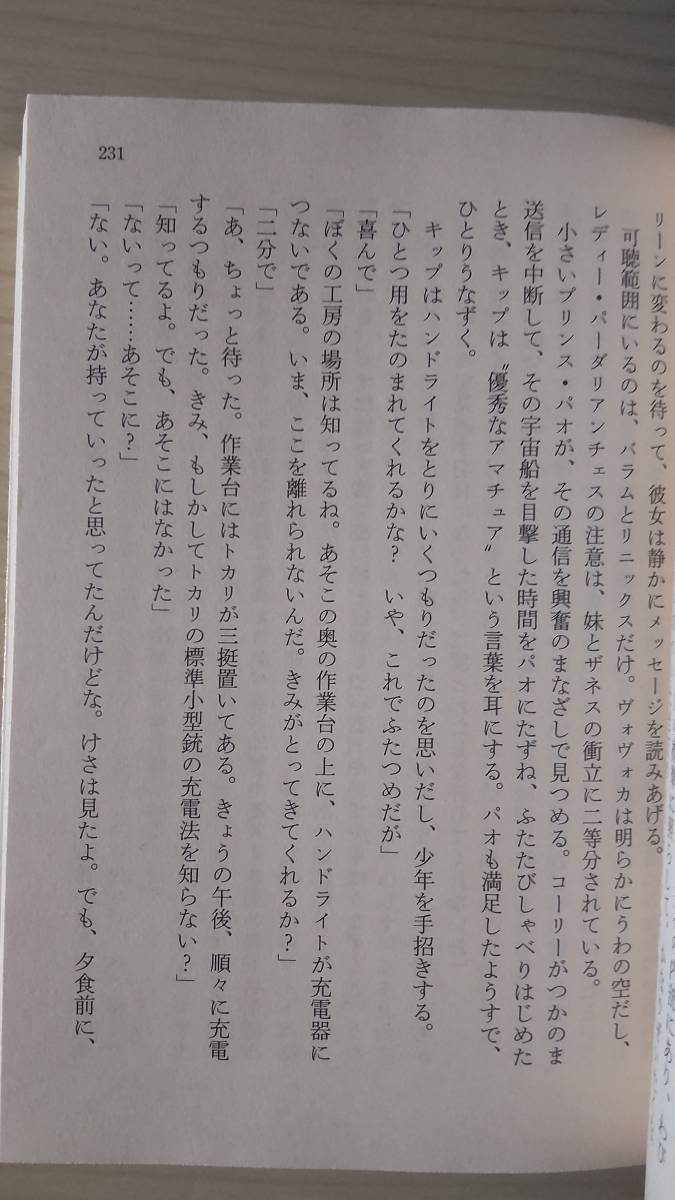 リーンに変わるのを待って、彼女は静かにメッセージを読みあげる。
可聴範囲にいるのは、バラムとリニックスだけ。ヴォヴォカは明らかにうわの空だし、
レディー・パーダリアンチェスの注意は、妹とザネスの衝立に二等分されている。
小さいプリンス・パオが、その通信を興奮のまなざしで見つめる。コーリーがつかのま
送信を中断して、その宇宙船を目撃した時間をパオにたずね、ふたたびしゃべりはじめた
とき、キップは〝優秀なアマチュア〟という言葉を耳にする。パオも満足したようすで、
ひとりうなずく。
キップはハンドライトをとりにいくつもりだったのを思いだし、少年を手招きする。
「ひとつ用をたのまれてくれるかな? いや、これでふたつめだが」
「喜んで」
「ぼくの工房の場所は知ってるね。あそこの奥の作業台の上に、ハンドライトが充電器に
つないである。いま、ここを離れられないんだ。きみがとってきてくれるか?」
「二分で」
「あ、ちょっと待った。作業台にはトカリが三挺置いてある。きょうの午後、順々に充電
するつもりだった。きみ、もしかしてトカリの標準小型銃の充電法を知らない?」
「知ってるよ。でも、あそこにはなかった」
「ないって……あそこに?」
「ない。あなたが持っていったと思ってたんだけどな。けさは見たよ。でも、夕食前に、
231